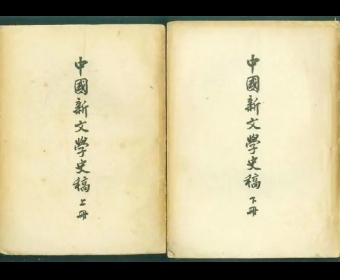 中國新文學史稿 上册
中國新文學史稿 下册